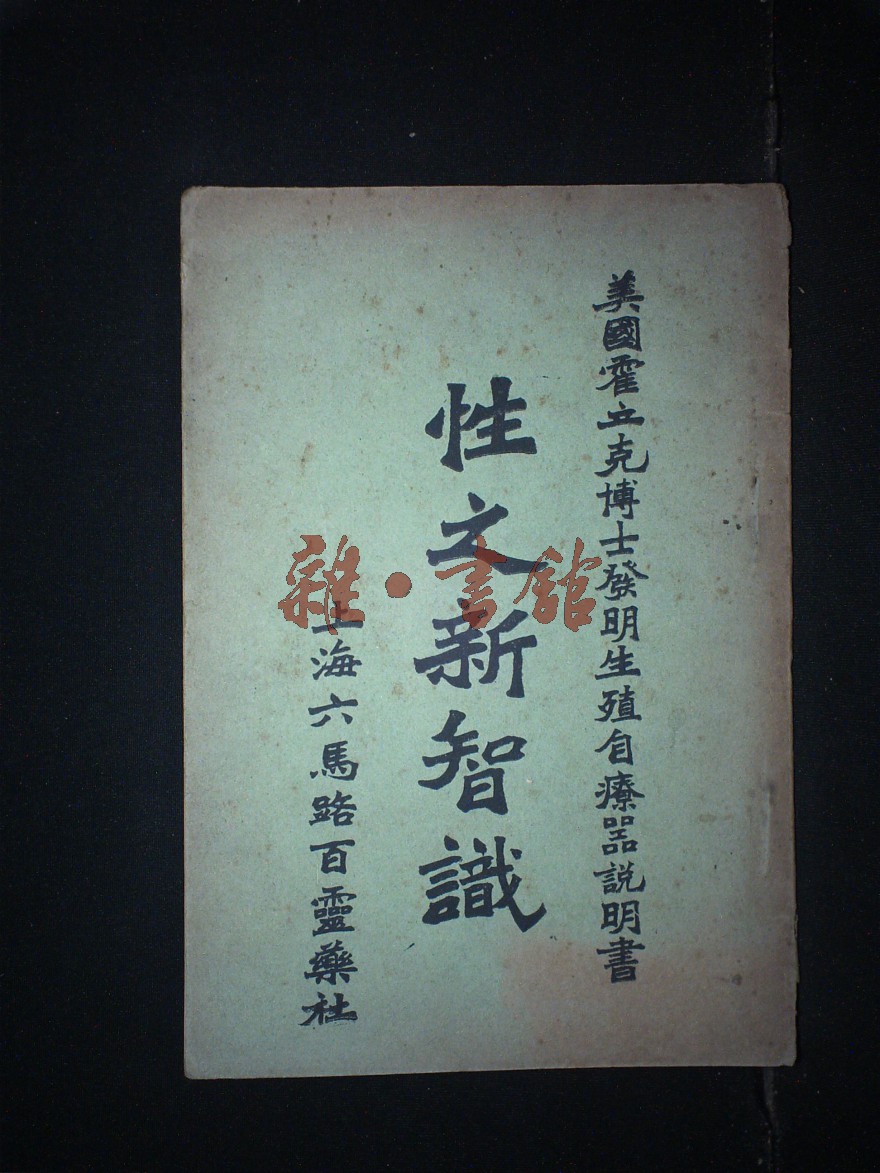 美國霍立克博士發明生殖自療器説明書
性之新智識
上海六馬路百靈藥社
雜·書館